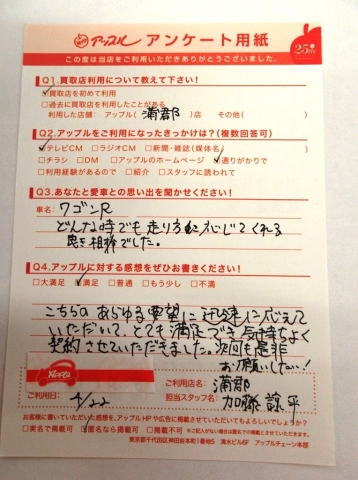 アップル アンケート用紙
25th
この度は当店をご利用いただきありがとうございました。
Q1.買取店利用について教えて下さい!
☑買取店を初めて利用
□過去に買取店を利用したことがある
利用した店舗: アップル( 蒲郡 )店 その他( )
Q2.アップルをご利用になったきっかけは?(複数回答可)
☑テレビCM □ラジオCM □新聞・雑誌(媒体名 )
□チラシ □DM □アップルのホームページ ☑通りがかりで
□利用経験があるので □紹介 □スタッフに誘われて
Q3.あなたと愛車との思い出を聞かせください!
車名: ワゴンR
どんな時でも走り方に応じてくれる
良き相棒でした。
Q4.アップルに対する感想をぜひお書きください!
□大満足 ☑満足 □普通 □もう少し □不満
こちらのあらゆる要望に迅速に応えて
いただいて、とても満足でき気持ちよく
契約させていただきました。次回も是非
お願いしたい!
Apple
ご利用日: 4/22
ご利用店名: 蒲郡
担当スタッフ名: 加藤 諒平
お客様に書いていただいた感想を、アップルHPや広告に掲載させていただいてもよろしいでしょうか?
□実名で掲載可 ☑匿名なら掲載可 □掲載不可 ※ご記入がない場合は匿名での掲載とさせていただきます。
東京都千代田区神田岩本町1番地5 清水ビル6F アップルチェーン本部